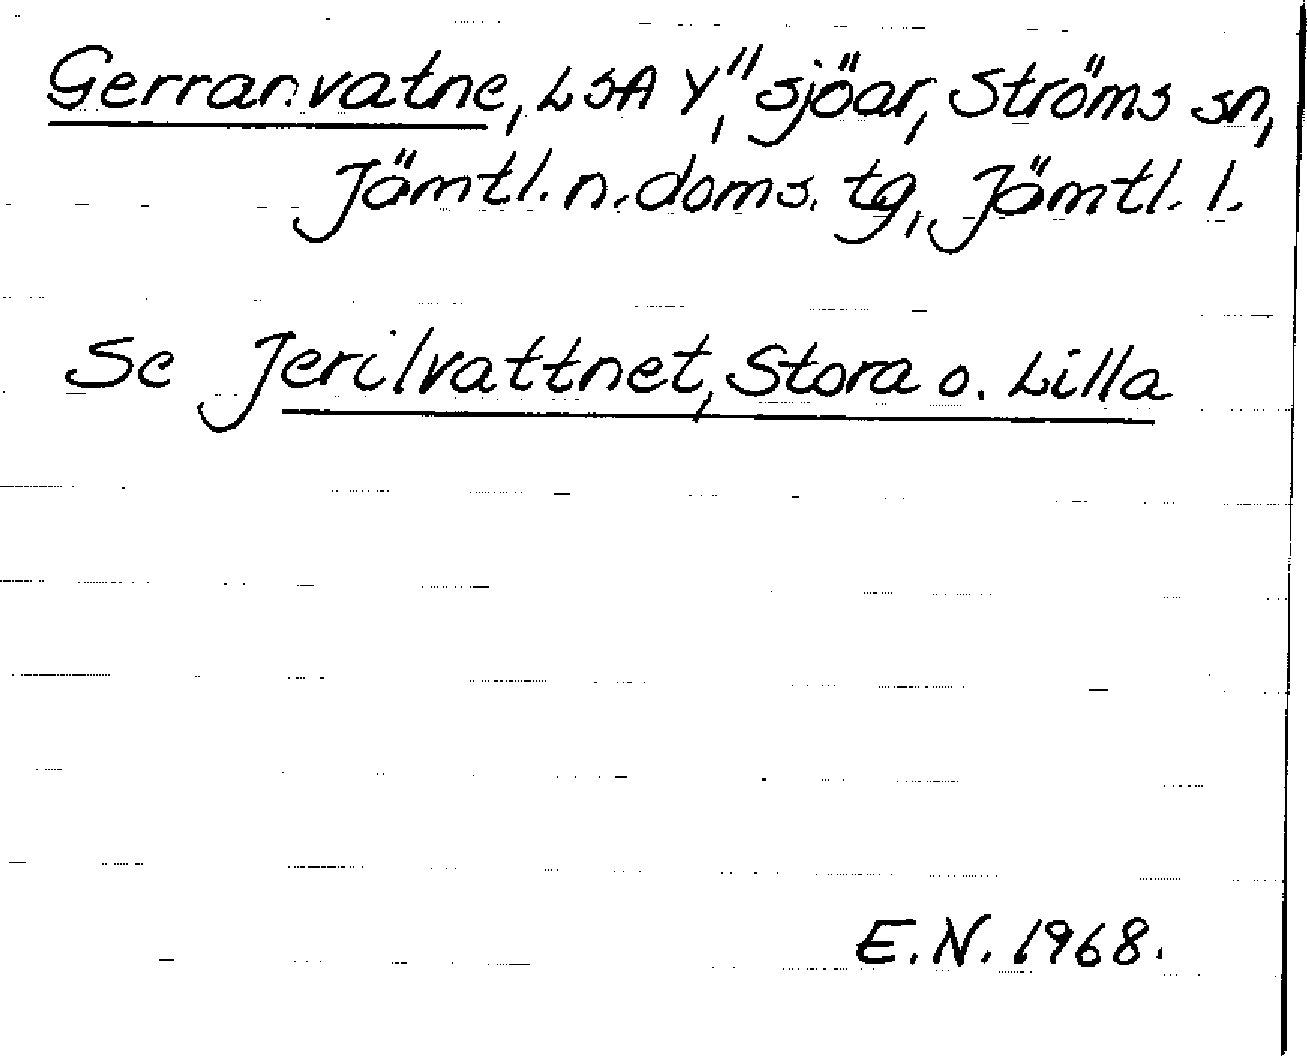 Gerranvatne, LSA Y," sjöar, Ströms sn,
Jämtl. n. doms. tg, Jämtl. l.
Se Jerilvattnet, Stora o. Lilla
E.N. 1968.